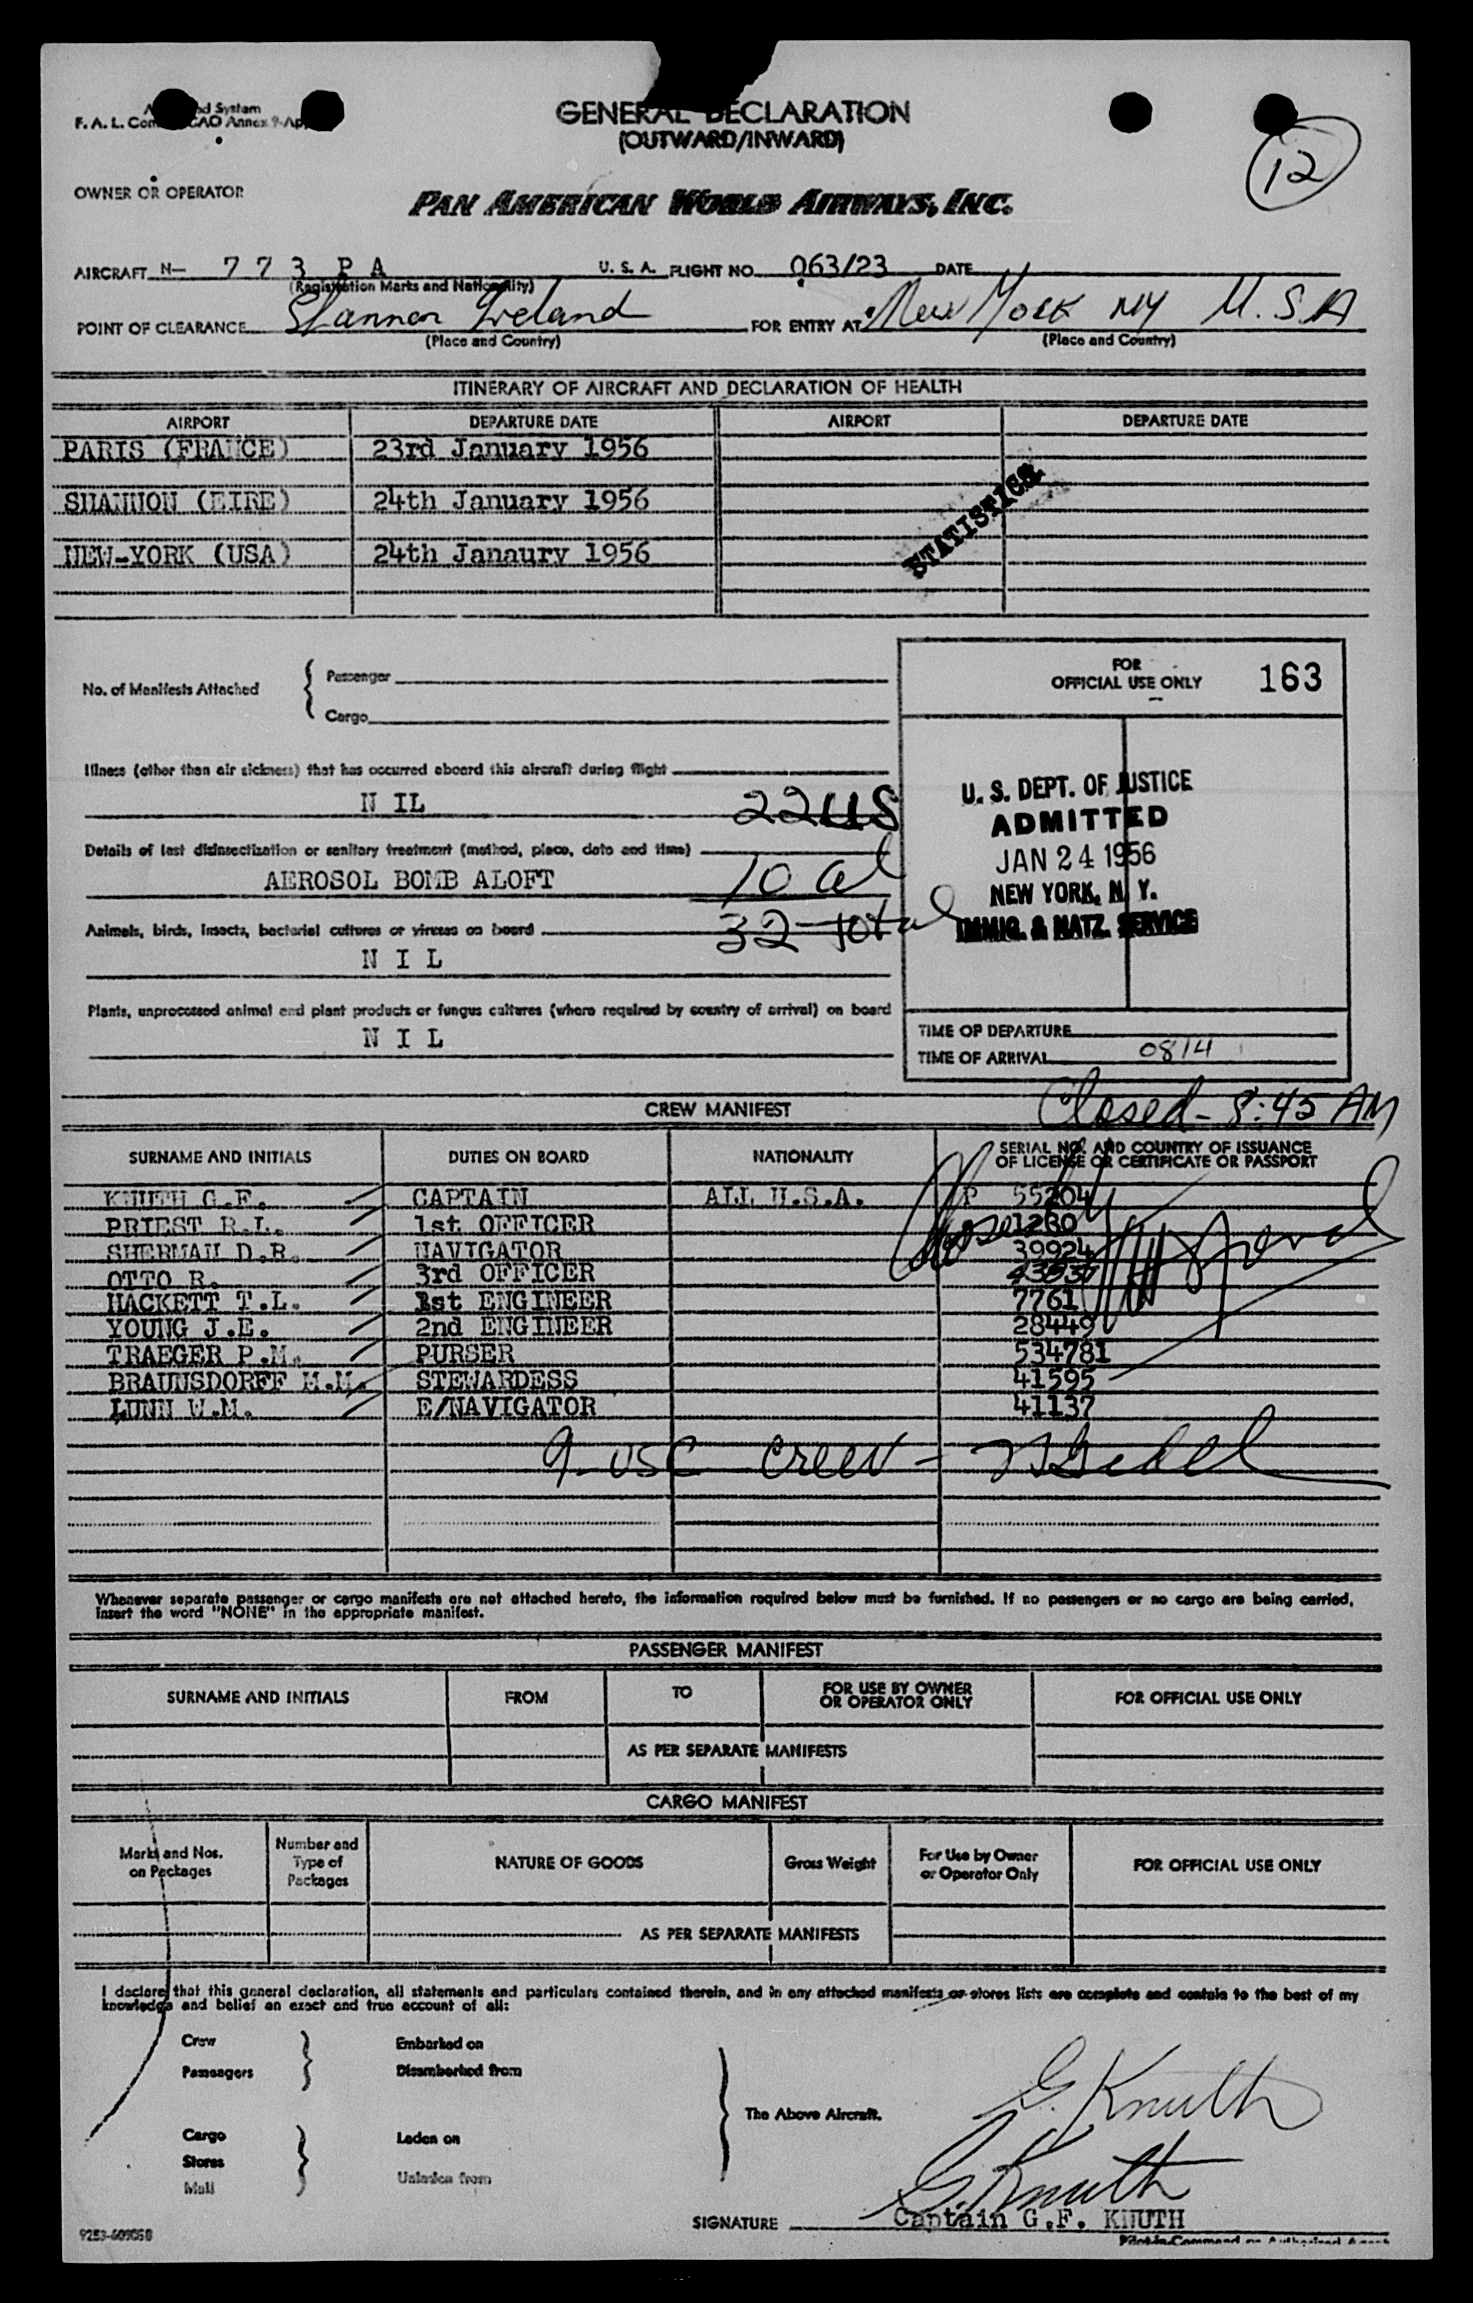 nd System
F. A. L. Com CAO Annex 9-Ap
GENERAL DECLARATION
(OUTWARD/INWARD)
12
OWNER OR OPERATOR
PAN AMERICAN WORLD AIRWAYS, INC.
AIRCRAFT N- 773 PA U. S. A. FLIGHT NO. 063/23 DATE
(Registration Marks and Nationality)
POINT OF CLEARANCE Shannon Ireland FOR ENTRY AT New York NY U.S.A
(Place and Country) (Place and Country)
ITINERARY OF AIRCRAFT AND DECLARATION OF HEALTH
AIRPORT DEPARTURE DATE AIRPORT DEPARTURE DATE
PARIS (FRANCE) 23rd January 1956
SHANNON (EIRE) 24th January 1956
NEW-YORK (USA) 24th Janaury 1956
STATISTICS
No. of Manifests Attached
Passenger
Cargo
FOR
OFFICIAL USE ONLY 163
Illness (other than air sickness) that has occurred aboard this aircraft during flight
N IL 22 US
Details of last disinsectization or sanitary treatment (method, place, date and time)
AEROSOL BOMB ALOFT 10 al
Animals, birds, insects, bacterial cultures or viruses on board 32 total
N I L
Plants, unprocessed animal and plant products or fungus cultures (where required by country of arrival) on board
N I L
U. S. DEPT. OF JUSTICE
ADMITTED
JAN 24 1956
NEW YORK, N. Y.
IMMIG. & NATZ. SERVICE
TIME OF DEPARTURE
TIME OF ARRIVAL 0814
CREW MANIFEST Closed - 8:45 AM
SURNAME AND INITIALS DUTIES ON BOARD NATIONALITY SERIAL NO. AND COUNTRY OF ISSUANCE
OF LICENSE OR CERTIFICATE OR PASSPORT
KNUTH G.F. CAPTAIN ALL U.S.A. P 55204
PRIEST R.L. 1st OFFICER 1280
SHERMAN D.R. NAVIGATOR 39924
OTTO R. 3rd OFFICER
HACKETT T.L. 1st ENGINEER 7761
YOUNG J.E. 2nd ENGINEER 28449
TRAEGER P.M. PURSER 534781
BRAUNSDORFF M.M. STEWARDESS 41595
LUNN W.M. E/NAVIGATOR 41137
9 - USC Crew -
Whenever separate passenger or cargo manifests are not attached hereto, the information required below must be furnished. If no passengers or no cargo are being carried,
insert the word "NONE" in the appropriate manifest.
PASSENGER MANIFEST
SURNAME AND INITIALS FROM TO FOR USE BY OWNER
OR OPERATOR ONLY FOR OFFICIAL USE ONLY
AS PER SEPARATE MANIFESTS
CARGO MANIFEST
Marks and Nos.
on Packages Number and
Type of
Packages NATURE OF GOODS Gross Weight For Use by Owner
or Operator Only FOR OFFICIAL USE ONLY
AS PER SEPARATE MANIFESTS
I declare that this general declaration, all statements and particulars contained therein, and in any attached manifests or stores lists are complete and contain to the best of my
knowledge and belief an exact and true account of all:
Crew Embarked on
Passengers Disembarked from
The Above Aircraft.
Cargo Laden on
Stores
Mail Unladen from
G. Knuth
G. Knuth
SIGNATURE Captain G.F. KNUTH
Pilot-in-Command or Authorized Agent